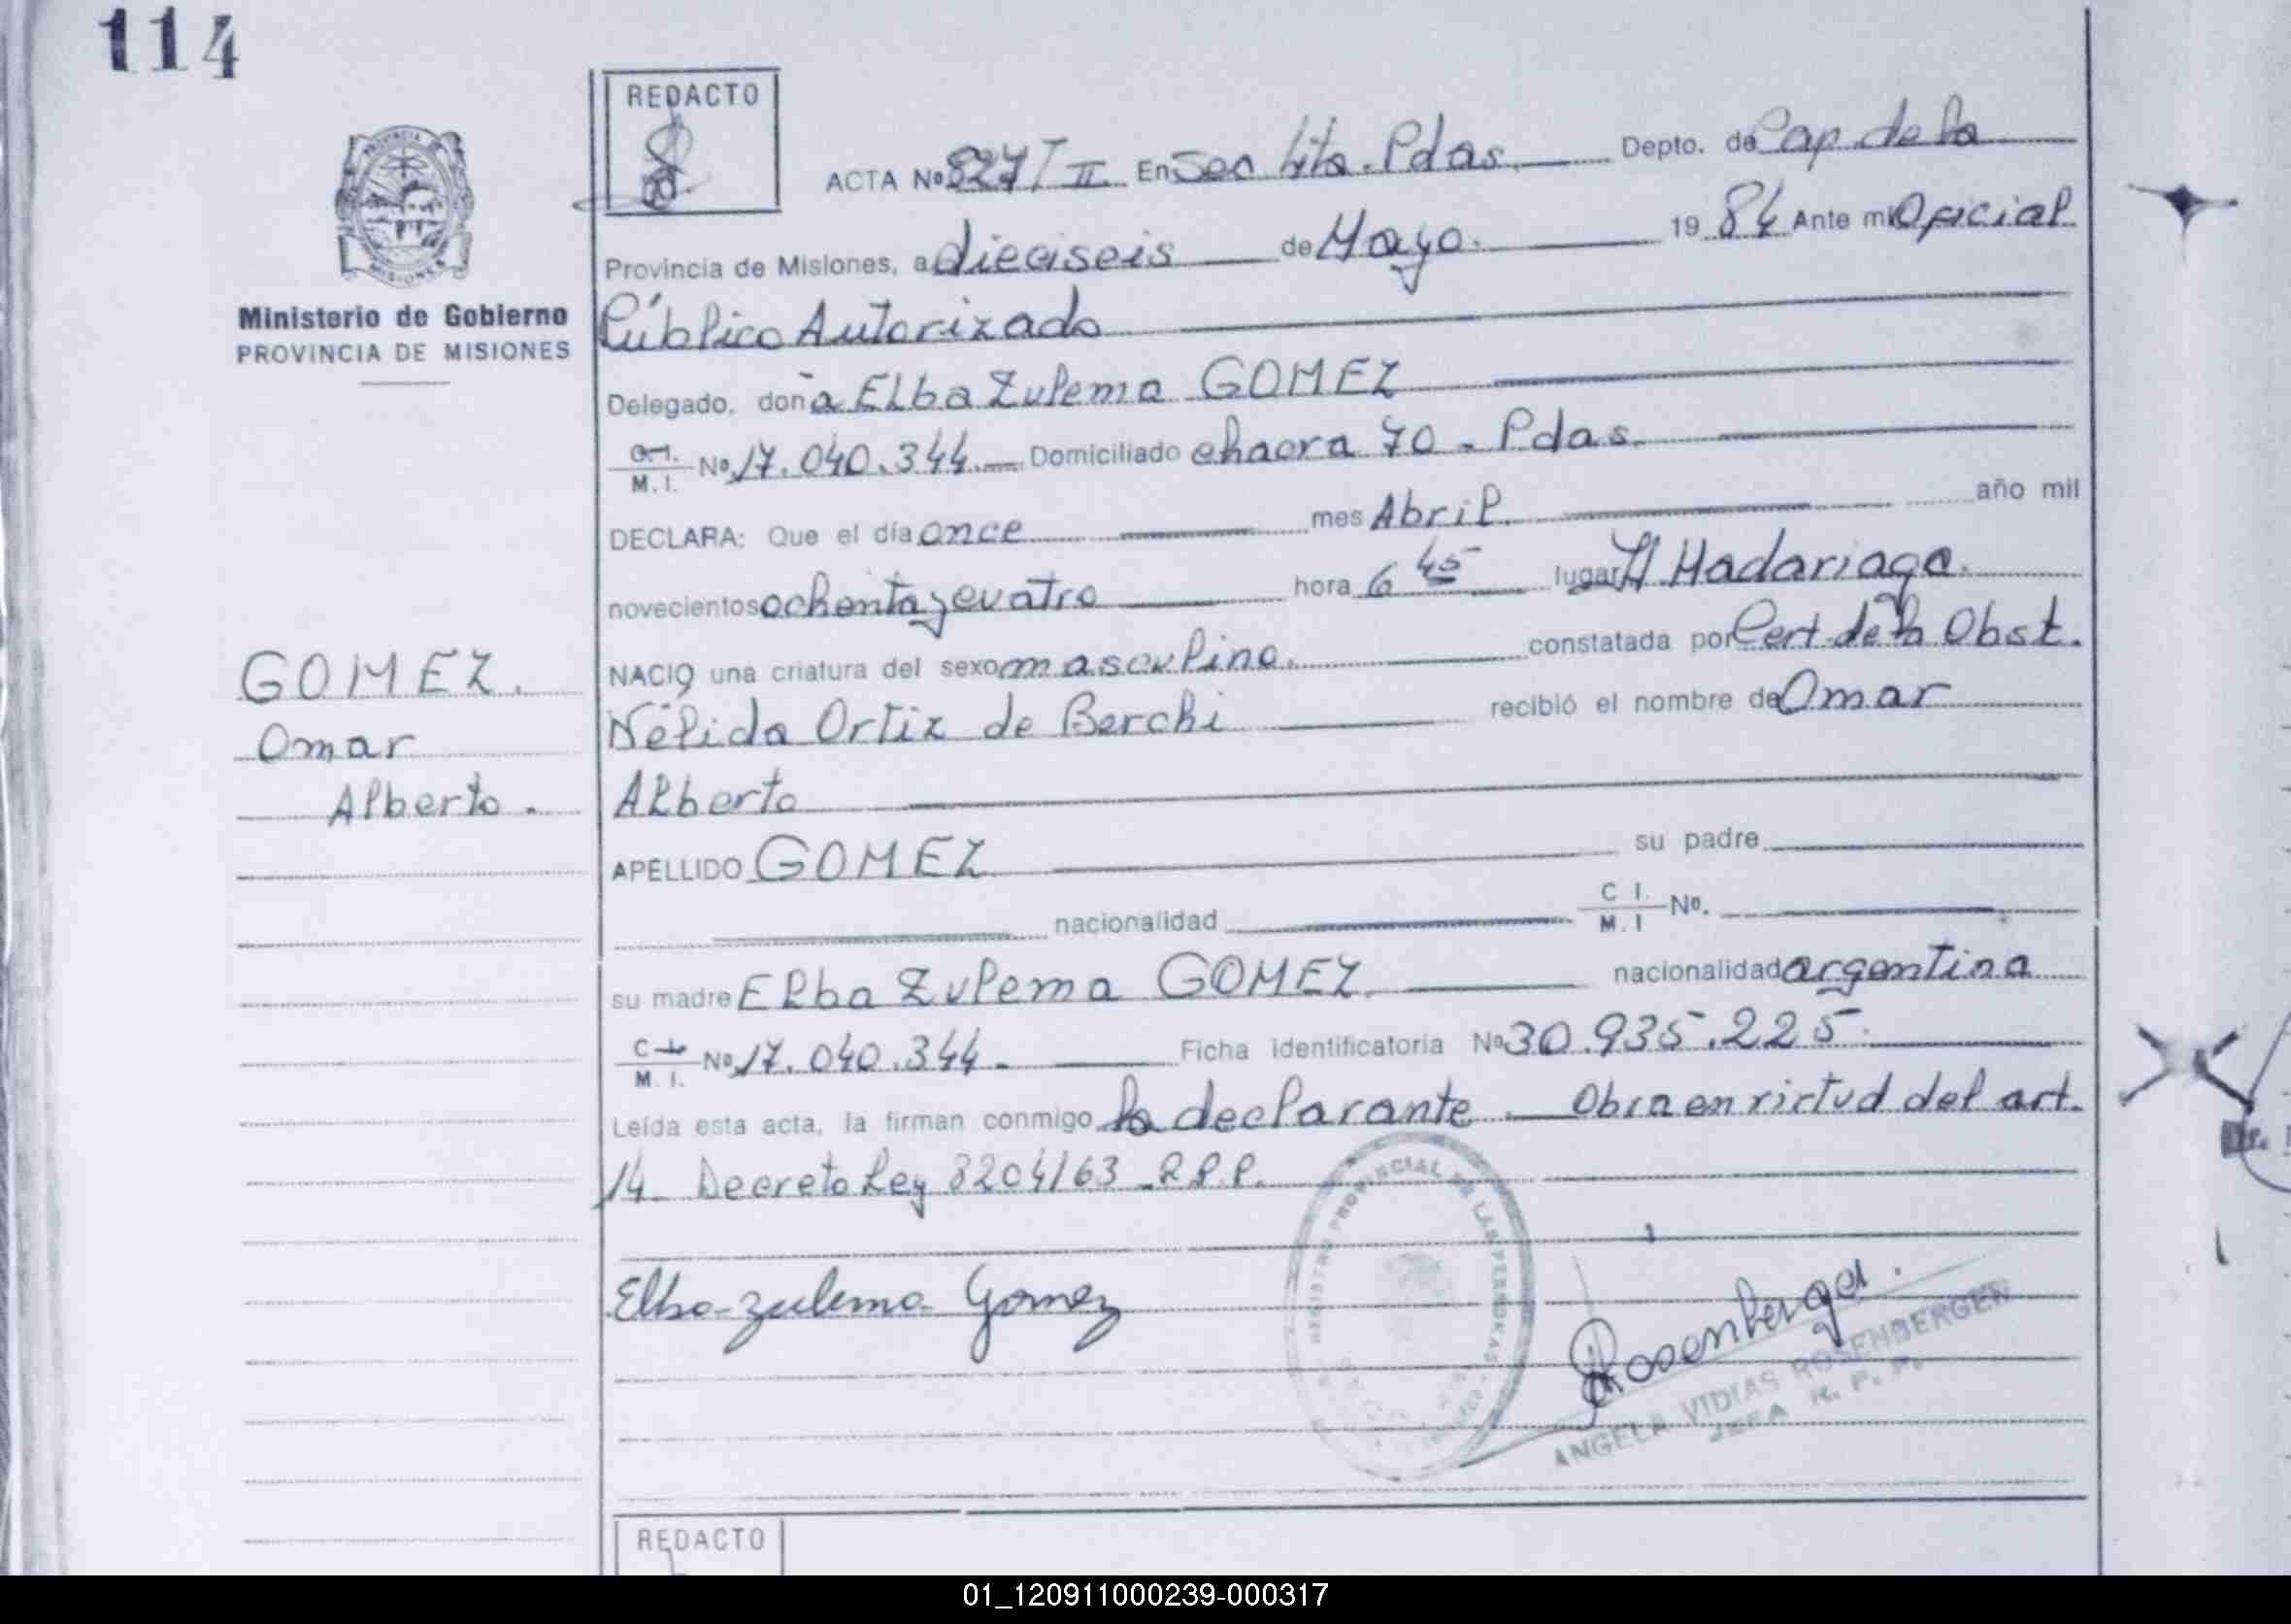 114
REDACTO
ACTA Nº 827/T II En Sec 4ta. Pdas. Depto. de Cap. de la
Provincia de Misiones, a dieciseis de Mayo. 1984 Ante mi Oficial
Público Autorizado
Delegado, doña Elba Zulema GOMEZ
C.I. M.I. Nº 17.040.344. Domiciliado chacra 70 - Pdas.
DECLARA: Que el día once mes Abril. año mil
novecientos ochenta y cuatro hora 6 45 lugar H Madariaga.
NACIO una criatura del sexo masculino. constatada por Cert. de la Obst.
Nélida Ortiz de Berchi recibió el nombre de Omar
Alberto
APELLIDO GOMEZ su padre
nacionalidad C I. M.I Nº.
su madre Elba Zulema GOMEZ. nacionalidad argentina
C I. M. I. Nº 17.040.344. Ficha identificatoria Nº 30.935.225.
Leída esta acta, la firman conmigo la declarante. Obra en virtud del art.
14 Decreto Ley 8204/63 R.P.P.
Elba Zulema Gomez
Rosenberger.
ANGELA VIDIAS ROSENBERGER
JEFA R. P. P.
REGISTRO PROVINCIAL DE LAS PERSONAS
PROVINCIA DE MISIONES
Ministerio de Gobierno
PROVINCIA DE MISIONES
GOMEZ.
Omar
Alberto.
REDACTO
01_120911000239-000317